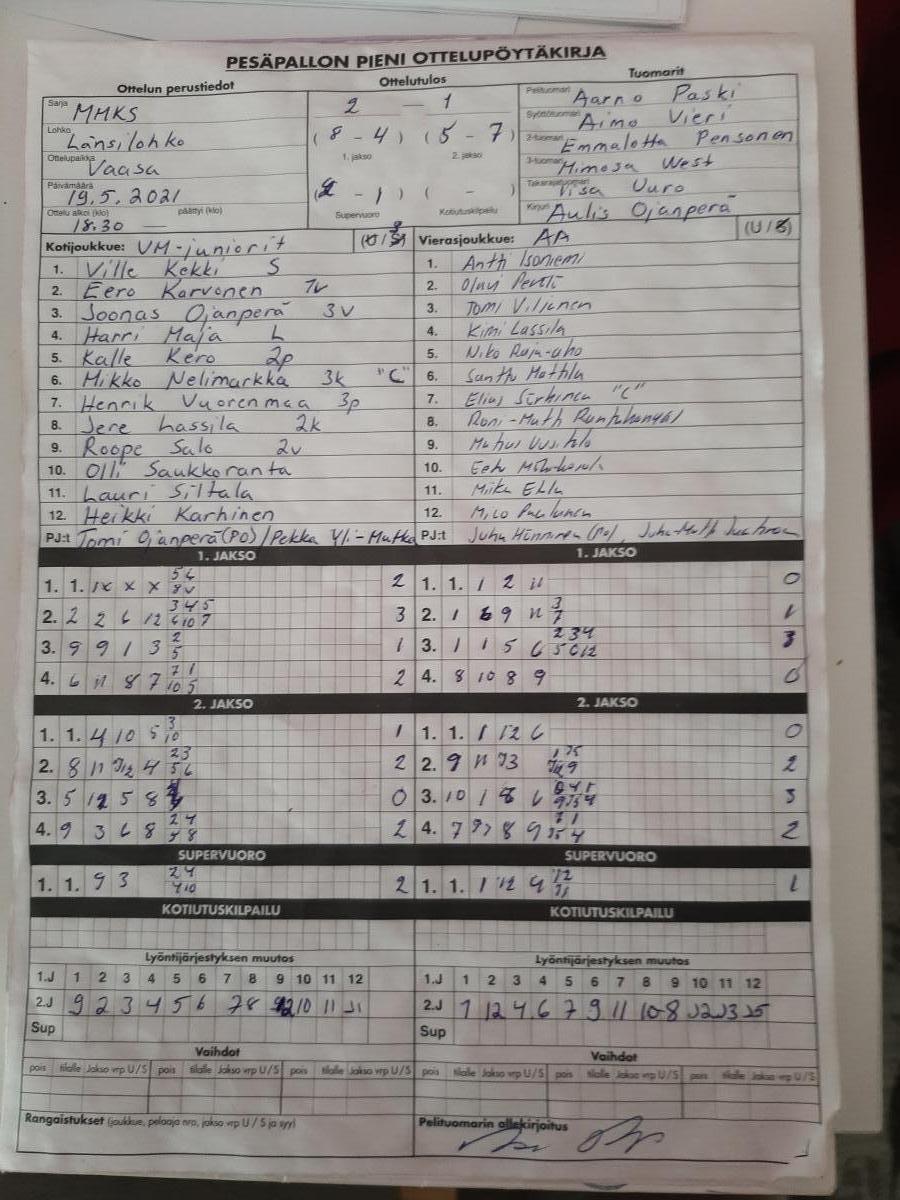 PESÄPALLON PIENI OTTELUPÖYTÄKIRJA
Ottelun perustiedot
Ottelutulos
Tuomarit
Sarja MMKS
Lohko Länsilohko
Ottelupaikka Vaasa
Päivämäärä 19.5.2021
Ottelu alkoi (klo) päättyi (klo)
18.30 —
2 — 1
(8 - 4) (5 - 7)
1. jakso 2. jakso
(2 - 1) ( - )
Supervuoro Kotiutuskilpailu
Pelituomari Aarno Paski
Syöttötuomari Aimo Vieri
2-tuomari Emmalotta Pensonen
3-tuomari Mimosa West
Takarajatuomari Visa Uuro
Kirjuri Aulis Ojanperä
Kotijoukkue: VM-juniorit (U / S)
1. Ville Kekki S
2. Eero Karvonen 1v
3. Joonas Ojanperä 3v
4. Harri Maja L
5. Kalle Kero 2p
6. Mikko Nelimarkka 3k "C"
7. Henrik Vuorenmaa 3p
8. Jere Lassila 2k
9. Roope Salo 2v
10. Olli Saukkoranta
11. Lauri Siltala
12. Heikki Karhinen
PJ:t Tomi Ojanperä (PO) / Pekka Yli-Mutka
Vierasjoukkue: AA (U / S)
1. Antti Isoniemi
2. Olavi
3. Tomi Viljanen
4. Kimi Lassila
5. Niko Raja-aho
6. Santtu Mattila
7. Elias "C"
8. Roni-Matti
9.
10. Eetu
11. Miika
12. Mico Paulunen
PJ:t Juha Hänninen (PO),
1. JAKSO
1. 1. 1x x x 5 6 8 v 2
2. 2 2 6 12 3 4 5 6 10 7 3
3. 9 9 1 3 2 5 1
4. 6 11 8 7 7 1 10 5 2
1. JAKSO
1. 1. 1 2 11 0
2. 1 6 9 11 3 7 1
3. 1 1 5 6 2 3 4 5 6 12 3
4. 8 10 8 9 0
2. JAKSO
1. 1. 4 10 5 3 10 1
2. 8 11 4 2 3 5 6 2
3. 5 12 5 8 0
4. 9 3 6 8 2 4 8 2
2. JAKSO
1. 1. 1 12 6 0
2. 9 11 J3 2
3. 10 1 8 6 3
4. 7 8 9 7 1 2
SUPERVUORO
1. 1. 9 3 2 4 10 2
SUPERVUORO
1. 1. 1 12 9 1
KOTIUTUSKILPAILU
KOTIUTUSKILPAILU
Lyöntijärjestyksen muutos
1.J 1 2 3 4 5 6 7 8 9 10 11 12
2.J 9 2 3 4 5 6 7 8 12 10 11 J1
Sup
Lyöntijärjestyksen muutos
1.J 1 2 3 4 5 6 7 8 9 10 11 12
2.J 1 12 4 6 7 9 11 10 8 J2 J3 J5
Sup
Vaihdot
pois tilalle Jakso vrp U / S pois tilalle Jakso vrp U / S pois tilalle Jakso vrp U / S
Vaihdot
pois tilalle Jakso vrp U / S pois tilalle Jakso vrp U / S pois tilalle Jakso vrp U / S
Rangaistukset (joukkue, pelaaja nro, jakso vrp U / S ja syy)
Pelituomarin allekirjoitus